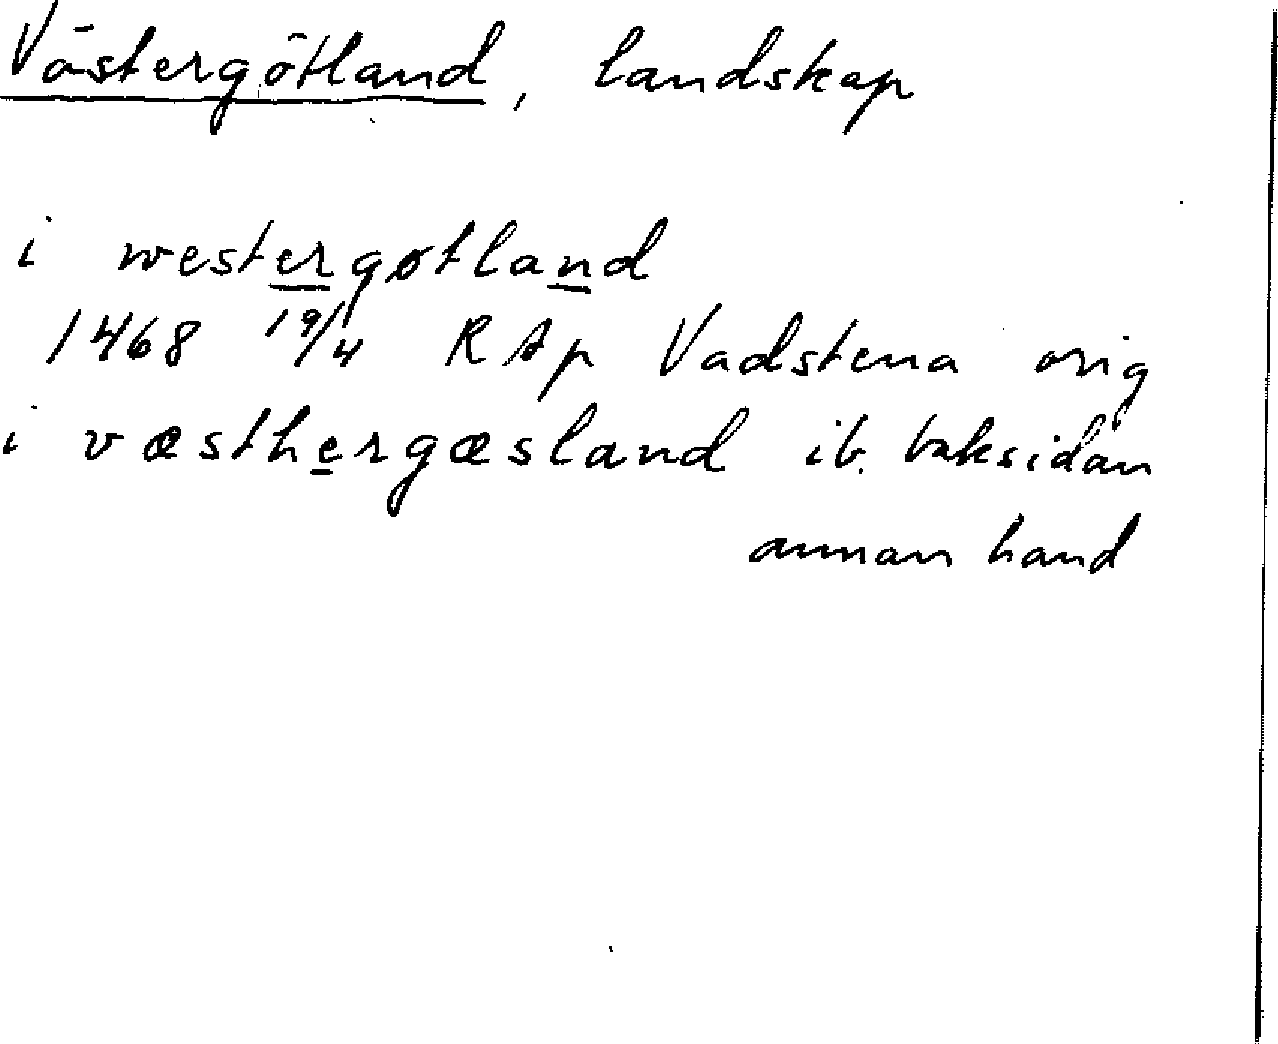 Västergötland, landskap
i westergøtland
1468 19/4 RAp Vadstena orig
i væsthergæsland ib. baksidan
annan hand